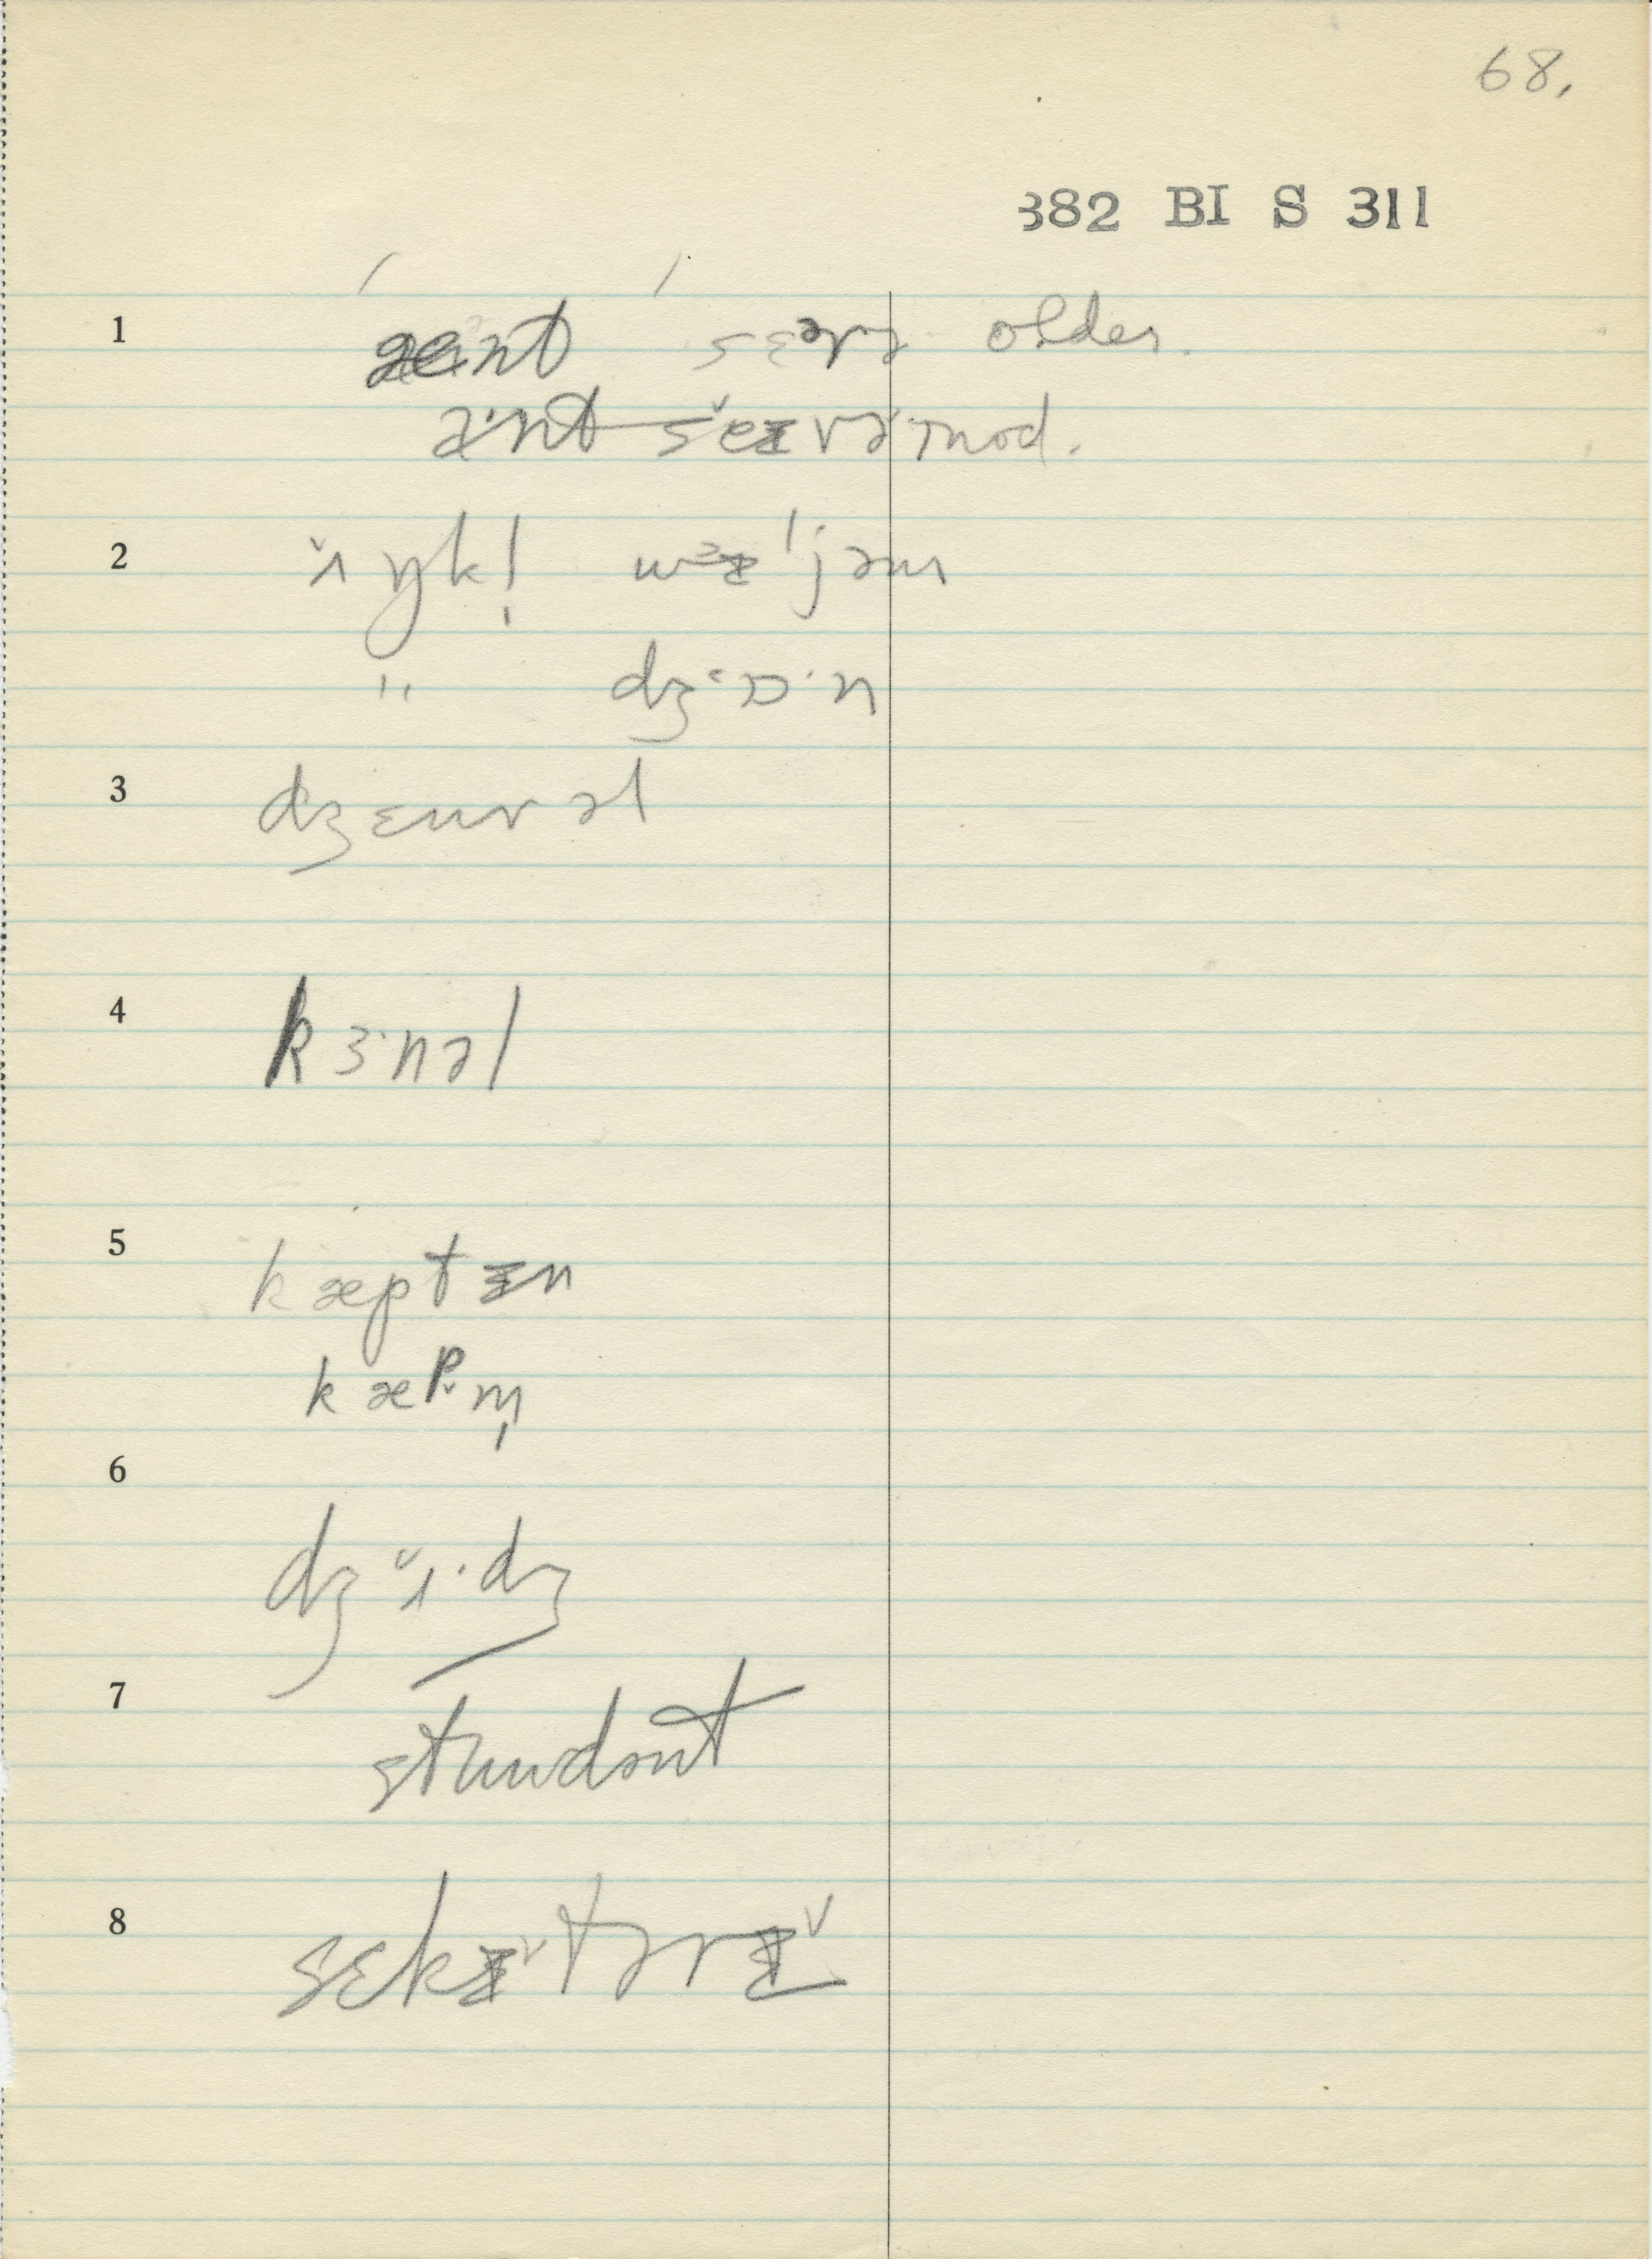 68.
382 BI S 311
1 æint sɛərə older.
ænt sɛˇɨrə mod.
2 ʌˇŋkl̩ wɨljəm
" dʒɒ·n
3 dʒɛnrəl
4 kɜ·nəl
5 kæptɨn
kæpˇm̩
6 dʒʌˇ·dʒ
7 stuudənt
8 sɛkɨˇtərɨˇ